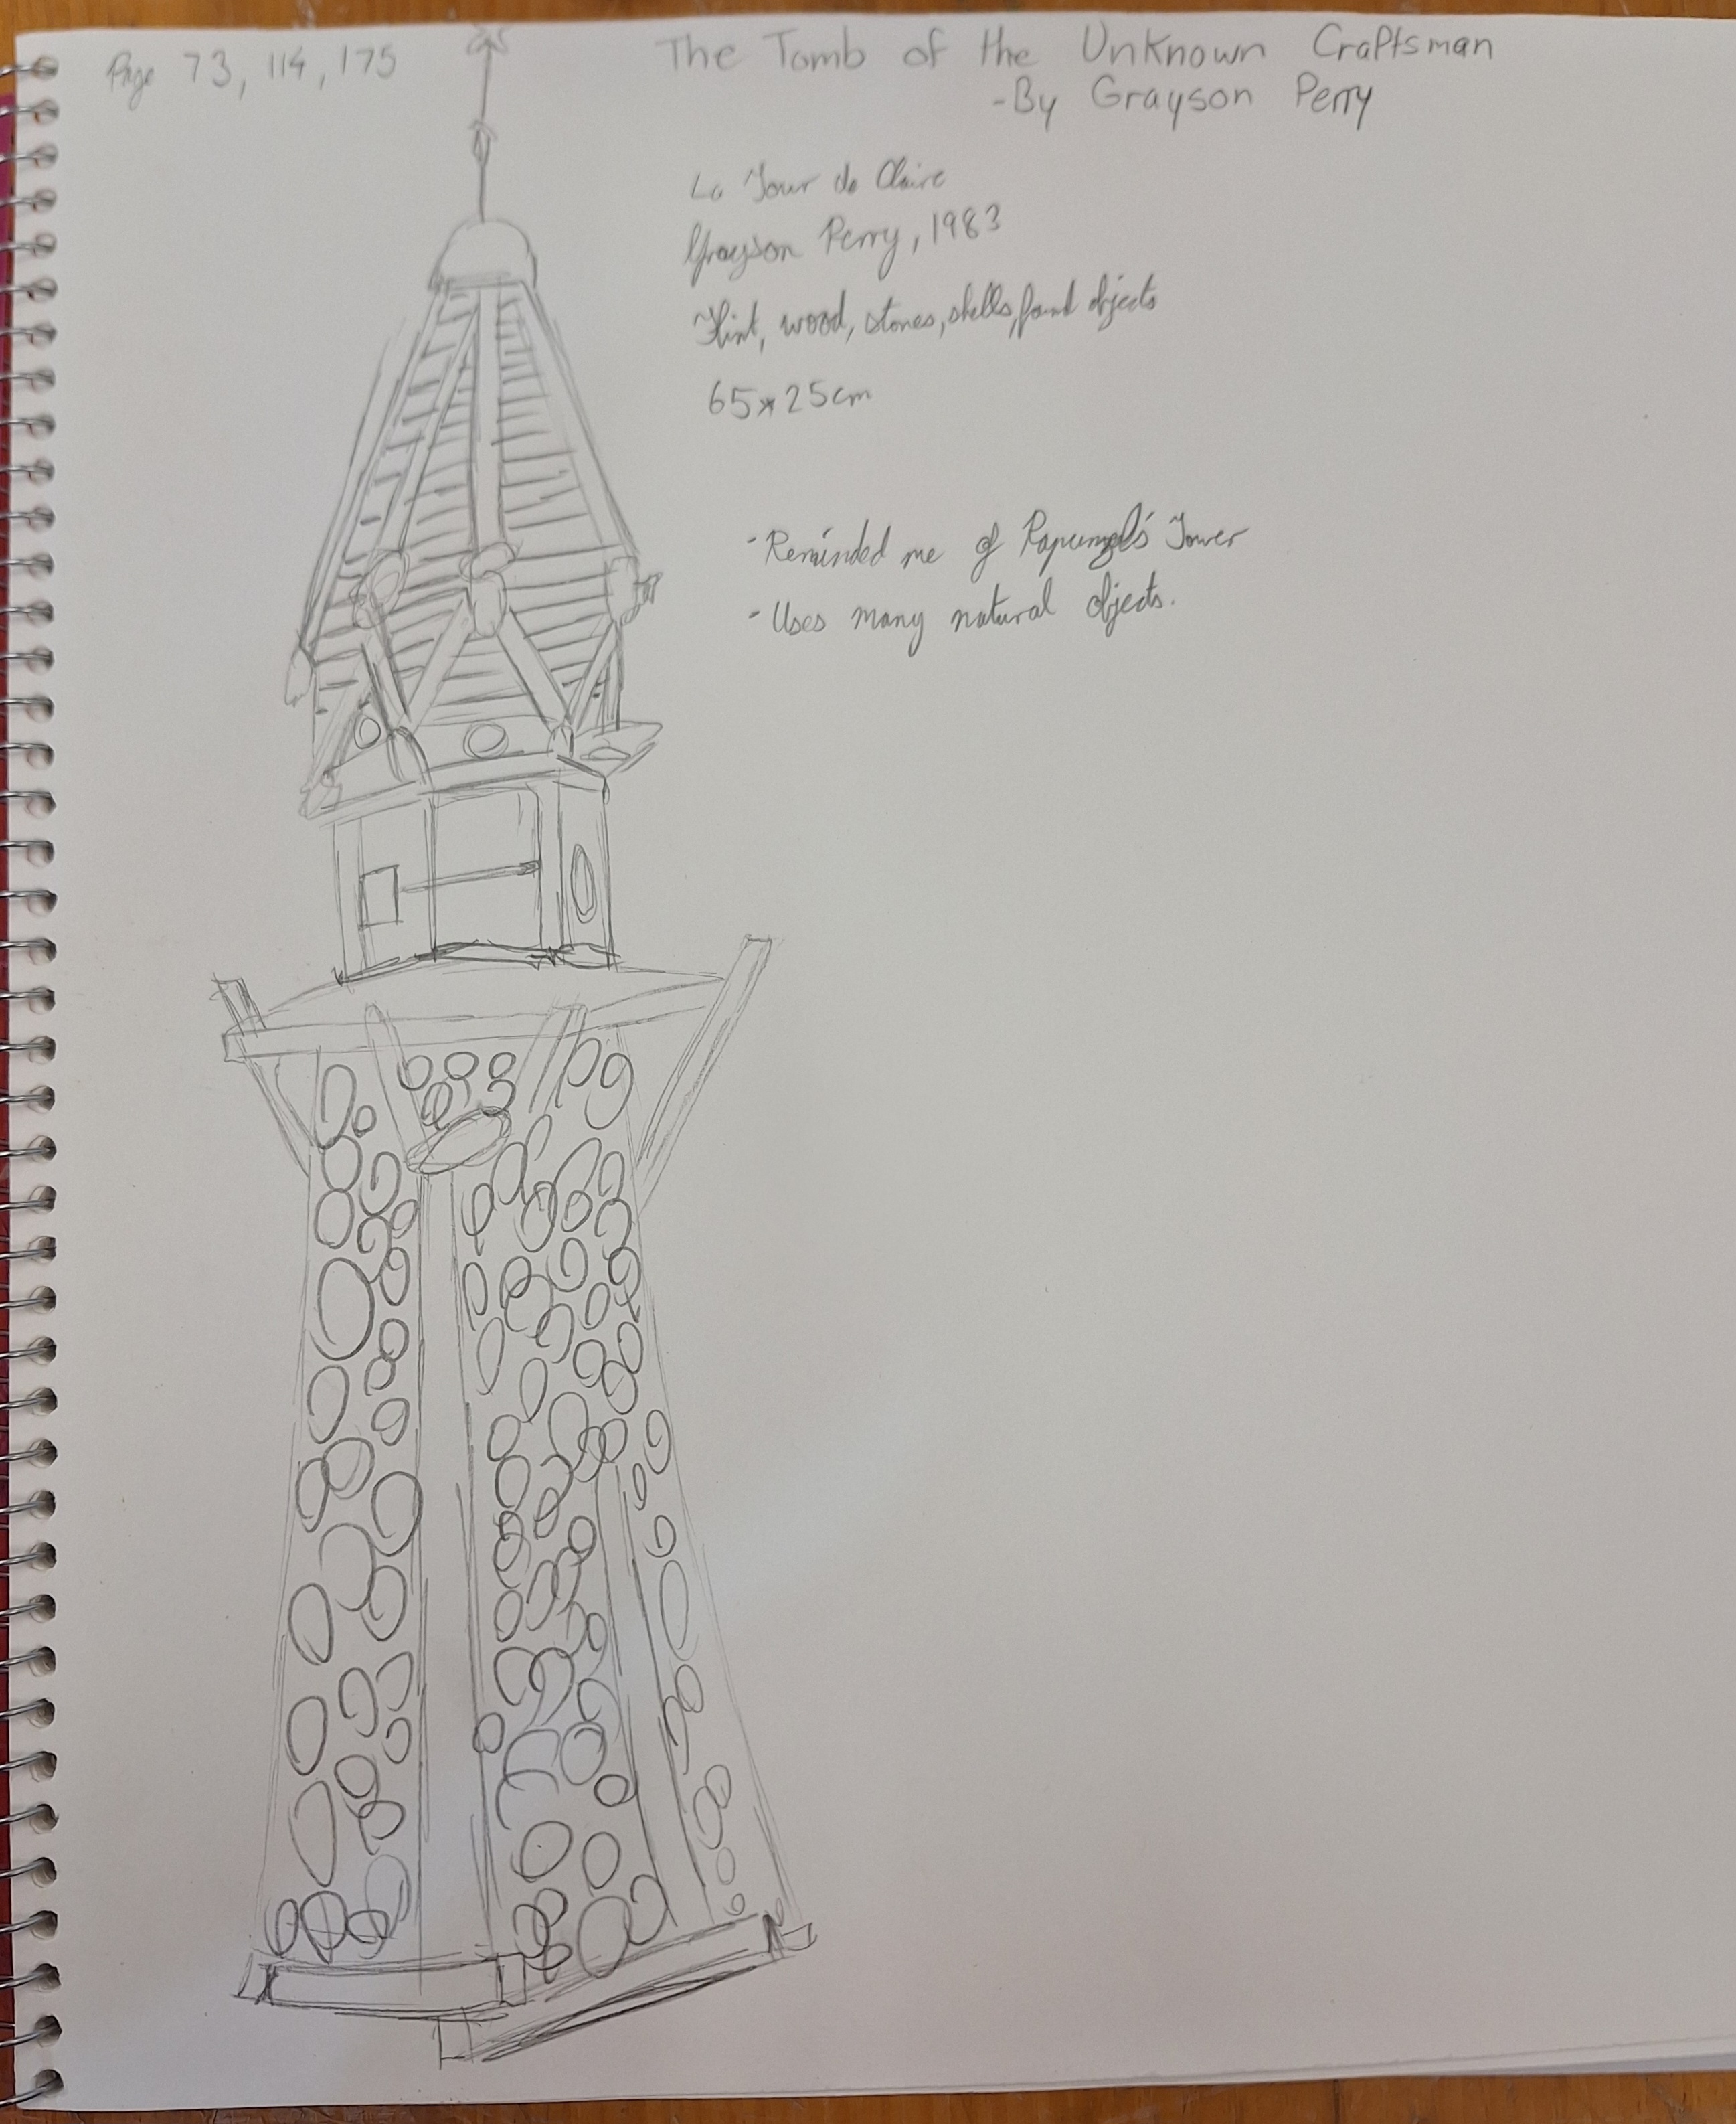 Page 73, 114, 175
The Tomb of the Unknown Craftsman
-By Grayson Perry
La Tour de Claire
Grayson Perry, 1983
Flint, wood, stones, shells, found objects
65x25cm
- Reminded me of Rapunzel's Tower
- Uses many natural objects.